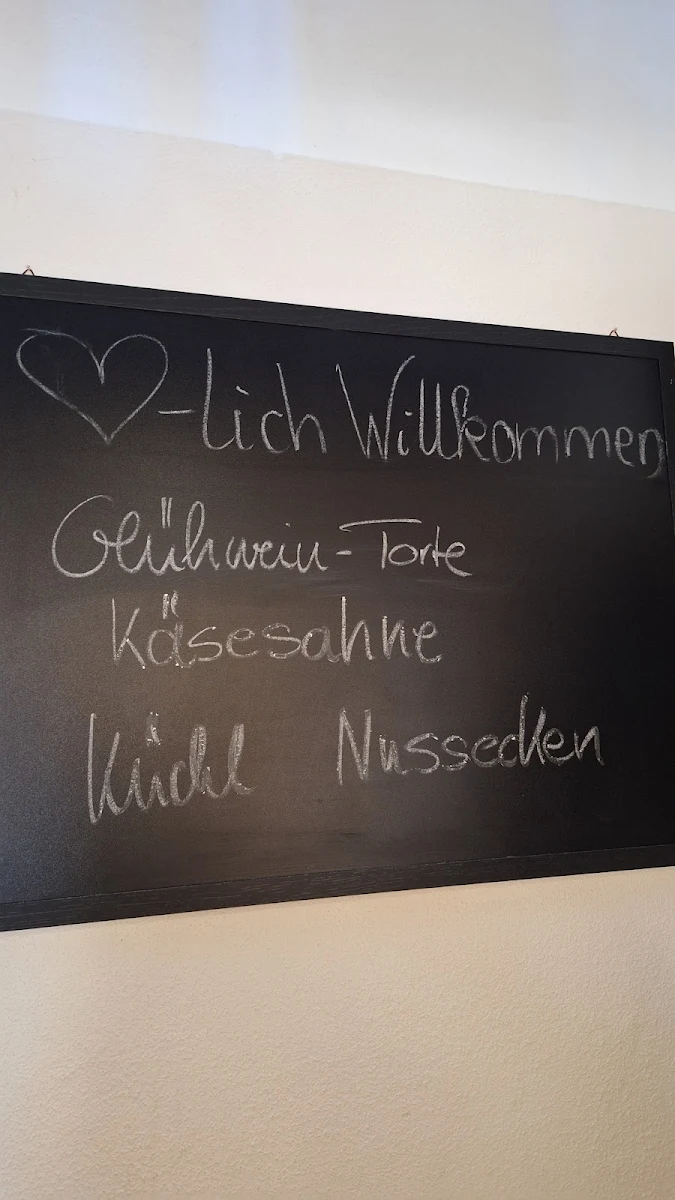 ♡-lich Willkommen
Glühwein-Torte
Käsesahne
Küchl Nussecken